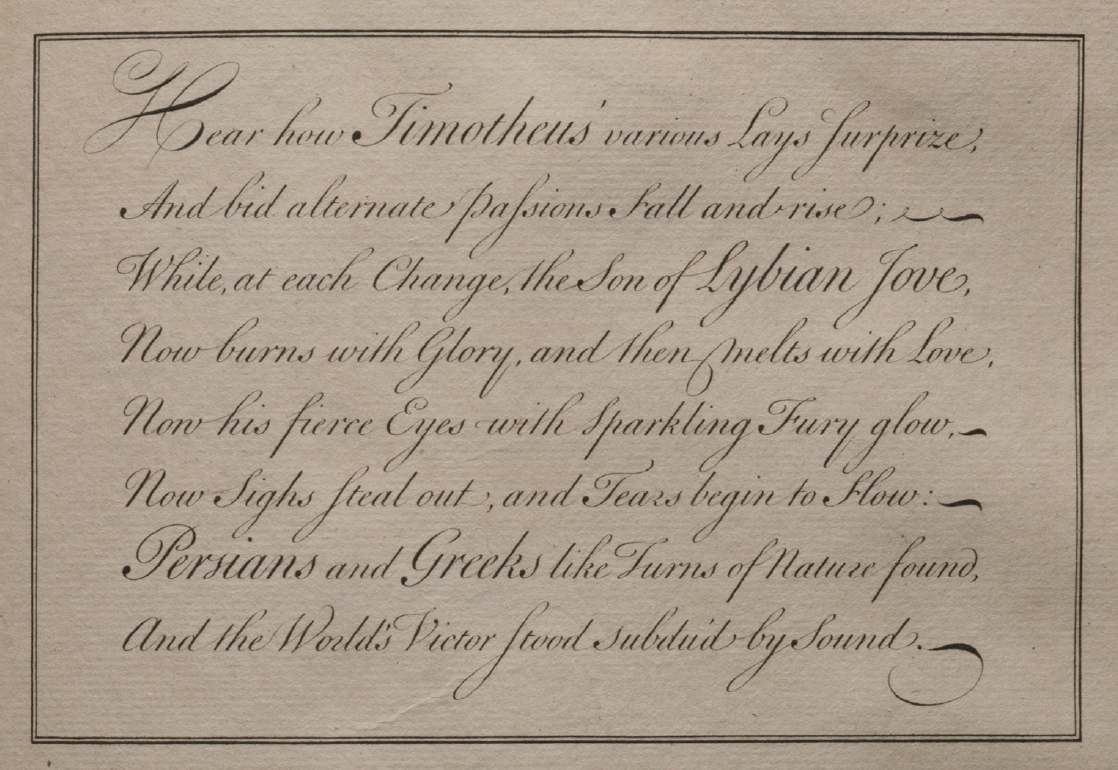 Hear how Timotheus' various Lays Surprize,
And bid alternate Paſsions Fall and rise;
While, at each Change, the Son of Lybian Jove,
Now burns with Glory, and then melts with Love,
Now his fierce Eyes with Sparkling Fury glow,
Now Sighs ſteal out, and Tears begin to Flow:
Persians and Greeks like Turns of Nature found,
And the World's Victor ſtood Subdu'd by Sound.